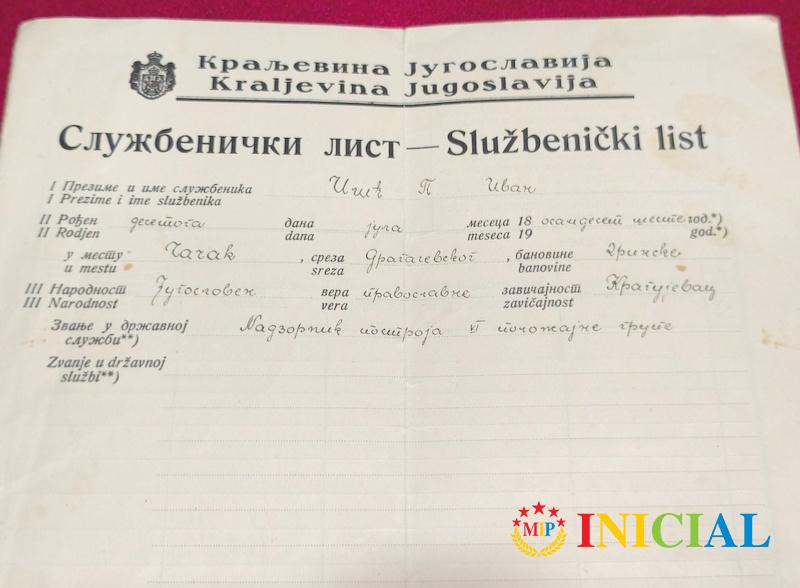 Краљевина Југославија
Kraljevina Jugoslavija
Службенички лист — Službenički list
I Презиме и име службеника П Иван
I Prezime i ime službenika
II Рођен десетога дана јула месеца 18 осамдесет шесте год.*)
II Rodjen dana meseca 19 god.*)
у месту Чачак , среза Драгачевског , бановине Дринске
u mestu sreza banovine
III Народност Југословен вера православне завичајност Крагујевац
III Narodnost vera zavičajnost
Звање у државној Надзорник построја VI положајне групе
служби**)
Zvanje u državnoj
službi**)
MIP INICIAL